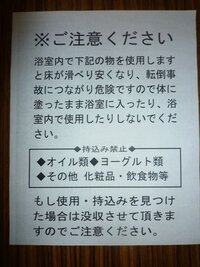 ※ご注意ください
浴室内で下記の物を使用します
と床が滑べり安くなり、転倒事
故につながり危険ですので体に
塗ったまま浴室に入ったり、浴
室内で使用したりしないでくだ
さい。
◆持込み禁止◆
◆オイル類◆ヨーグルト類
◆その他 化粧品・飲食物等
もし使用・持込みを見つけ
た場合は没収させて頂きま
すのでご注意ください。